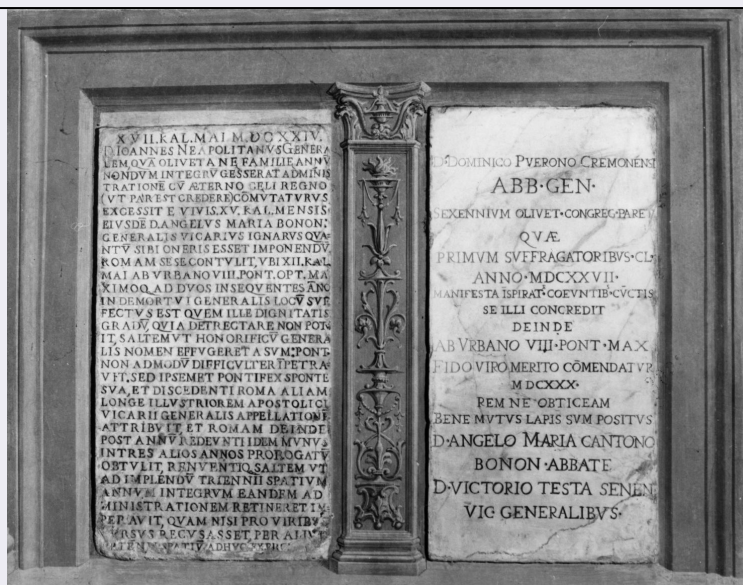 XVII. KAL. MAI M.DCXXIV.
D IOANNES NEAPOLITANVS GENERA
LEM, QVĀ OLIVETANE FAMILIE ANNV
NONDVM INTEGRV GESSERAT ADMINIS
TRATIONĒ CV̄ ÆTERNO CELI REGNO
(VT PAR EST CREDERE) CŌMVTATVRVS
EXCESSIT E VIVIS. XV. KAL. MENSIS
EIVSDĒ D. ANGELVS MARIA BONON:
GENERALIS VICARIVS IGNARVS QVA
NTV̄ SIBI ONERIS ESSET IMPONENDV̄
ROMAM SE SE CONTVLIT, VBI XII. KAL
MAI AB VRBANO VIII. PONT. OPT. MA
XIMOQ. AD DVOS INSEQVENTES ĀNO
IN DEMORTVI GENERALIS LOCV̄ SVF
FECTVS EST QVEM ILLE DIGNITATIS
GRADV̄, QVIA DETRECTARE NON POT
IT, SALTEM VT HONORIFICV̄ GENERA
LIS NOMEN EFFVGERET A SVM: PONT
NON ADMODV̄ DIFFICVLTER ĪPETRA
VIT. SED IPSEMET PONTIFEX SPONTE
SVA, ET DISCEDENTI ROMA ALIAM
LONGE ILLVSTRIOREM APOSTOLICI
VICARII GENERALIS APPELLATIONĒ
ATTRIBVIT, ET ROMAM DEINDE
POST ANNV̄ REDEVNTI IDEM MVNVS
IN TRES ALIOS ANNOS PROROGATV̄
OBTVLIT, RENVENTI Q. SALTEM VT
AD IMPLENDV̄ TRIENNII SPATIVM
ANNVM INTEGRVM EANDEM AD
MINISTRATIONEM RETINERET IM
PERAVIT, QVAM NISI PRO VIRIBVS
RVRSVS RECVSASSET, PER ALIVD
SPATIV̄ ADHVC
D. DOMINICO PVERONO CREMONENSI
ABB·GEN·
SEXENNIVM OLIVET·CONGREG·PARET
QVÆ
PRIMVM SVFFRAGATORIBVS·CL·
ANNO·MDCXXVII·
MANIFESTA ISPIRAT· COEVNTIB· CV̄CTIS
SE ILLI CONCREDIT
DEINDE
AB VRBANO VIII·PONT·MAX
FIDO VIRO MERITO CŌMENDATVR
MDCXXX·
REM NE OBTICEAM
BENE MVTVS LAPIS SVM POSITVS
D·ANGELO MARIA CANTONO
BONON·ABBATE
D·VICTORIO TESTA SENEN
VIC GENERALIBVS·